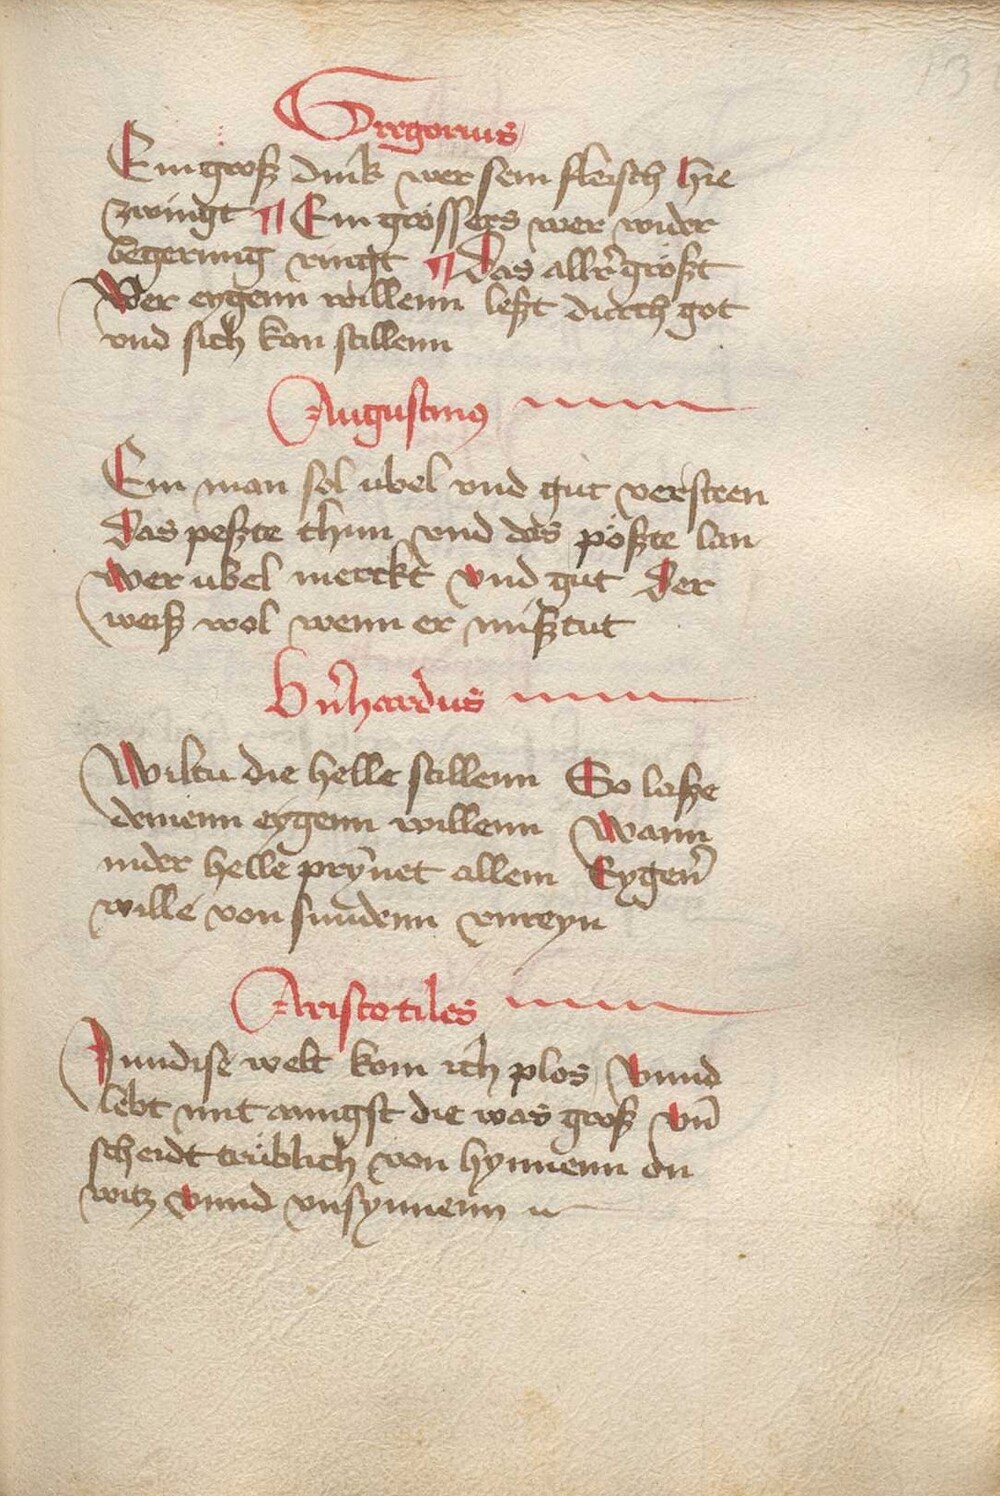 13
Gregorius
Ein groß dink wer sein fleisch hie
zwingt ¶ Ein grössers wer wider
begerung ringt ¶ Das allr̄ größt
Wer eygenn willenn leßt durch got
vnd sich kan stillenn
Augustinus
Ein man sol ubel vnd gut versteen
das peßte thun vnd das pößte lan
Wer ubel merckt vnd gut der
weiß wol wenn er mißtut
Bn̄hardus
Wiltu die helle stillenn So laße
deinenn eygenn willenn Wann
inder helle prȳnet allein Eygen̄
wille von sundenn vnreyn
Aristotiles
Inn dise welt kom ich plos vnnd
lebt mit anngst die was groß vn̄
scheidt trüblich von hynnenn on
witz vnnd vnsynnenn